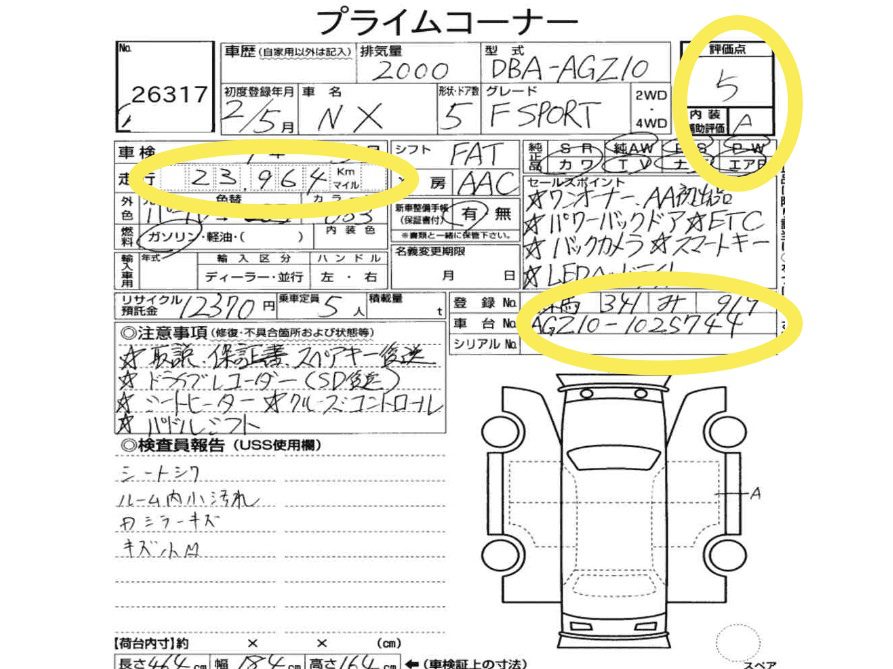 プライムコーナー
No. 26317
車歴 (自家用以外は記入) 排気量 2000 型式 DBA-AGZ10
評価点 5
初度登録年月 2/5月 車名 NX 形状・ドア数 5 グレード F SPORT 2WD・4WD
内装補助評価 A
車検 シフト FAT
純正品 SR 純AW PS PW
カワ TV ナビ エアB
走行 23,964 Km マイル 房 AAC
セールスポイント
☆ワンオーナー、AA初出品
☆パワーバックドア ☆ETC
☆バックカメラ ☆スマートキー
☆LEDヘッドライト
外色 色替 083
新車整備手帳(保証書付) 有・無
※書類と一緒に保管下さい。
燃料 ガソリン・軽油・( ) 内装色
名義変更期限 月 日
輸入車用 年式 輸入区分 ハンドル
ディーラー・並行 左・右
リサイクル預託金 12370円 乗車定員 5人 積載量 t
登録No. 341 み 917
車台No. AGZ10-1025744
シリアルNo.
◎注意事項 (修復・不具合箇所および状態等)
☆取説、保証書、スペアキー後送
☆ドライブレコーダー(SD後送)
☆シートヒーター ☆クルーズコントロール
☆パドルシフト
◎検査員報告 (USS使用欄)
シートシワ
ルーム内小汚れ
キズ小凹
A
【荷台内寸】約 × × (cm)
長さ464cm 幅184cm 高さ164cm ←(車検証上の寸法)
スペア